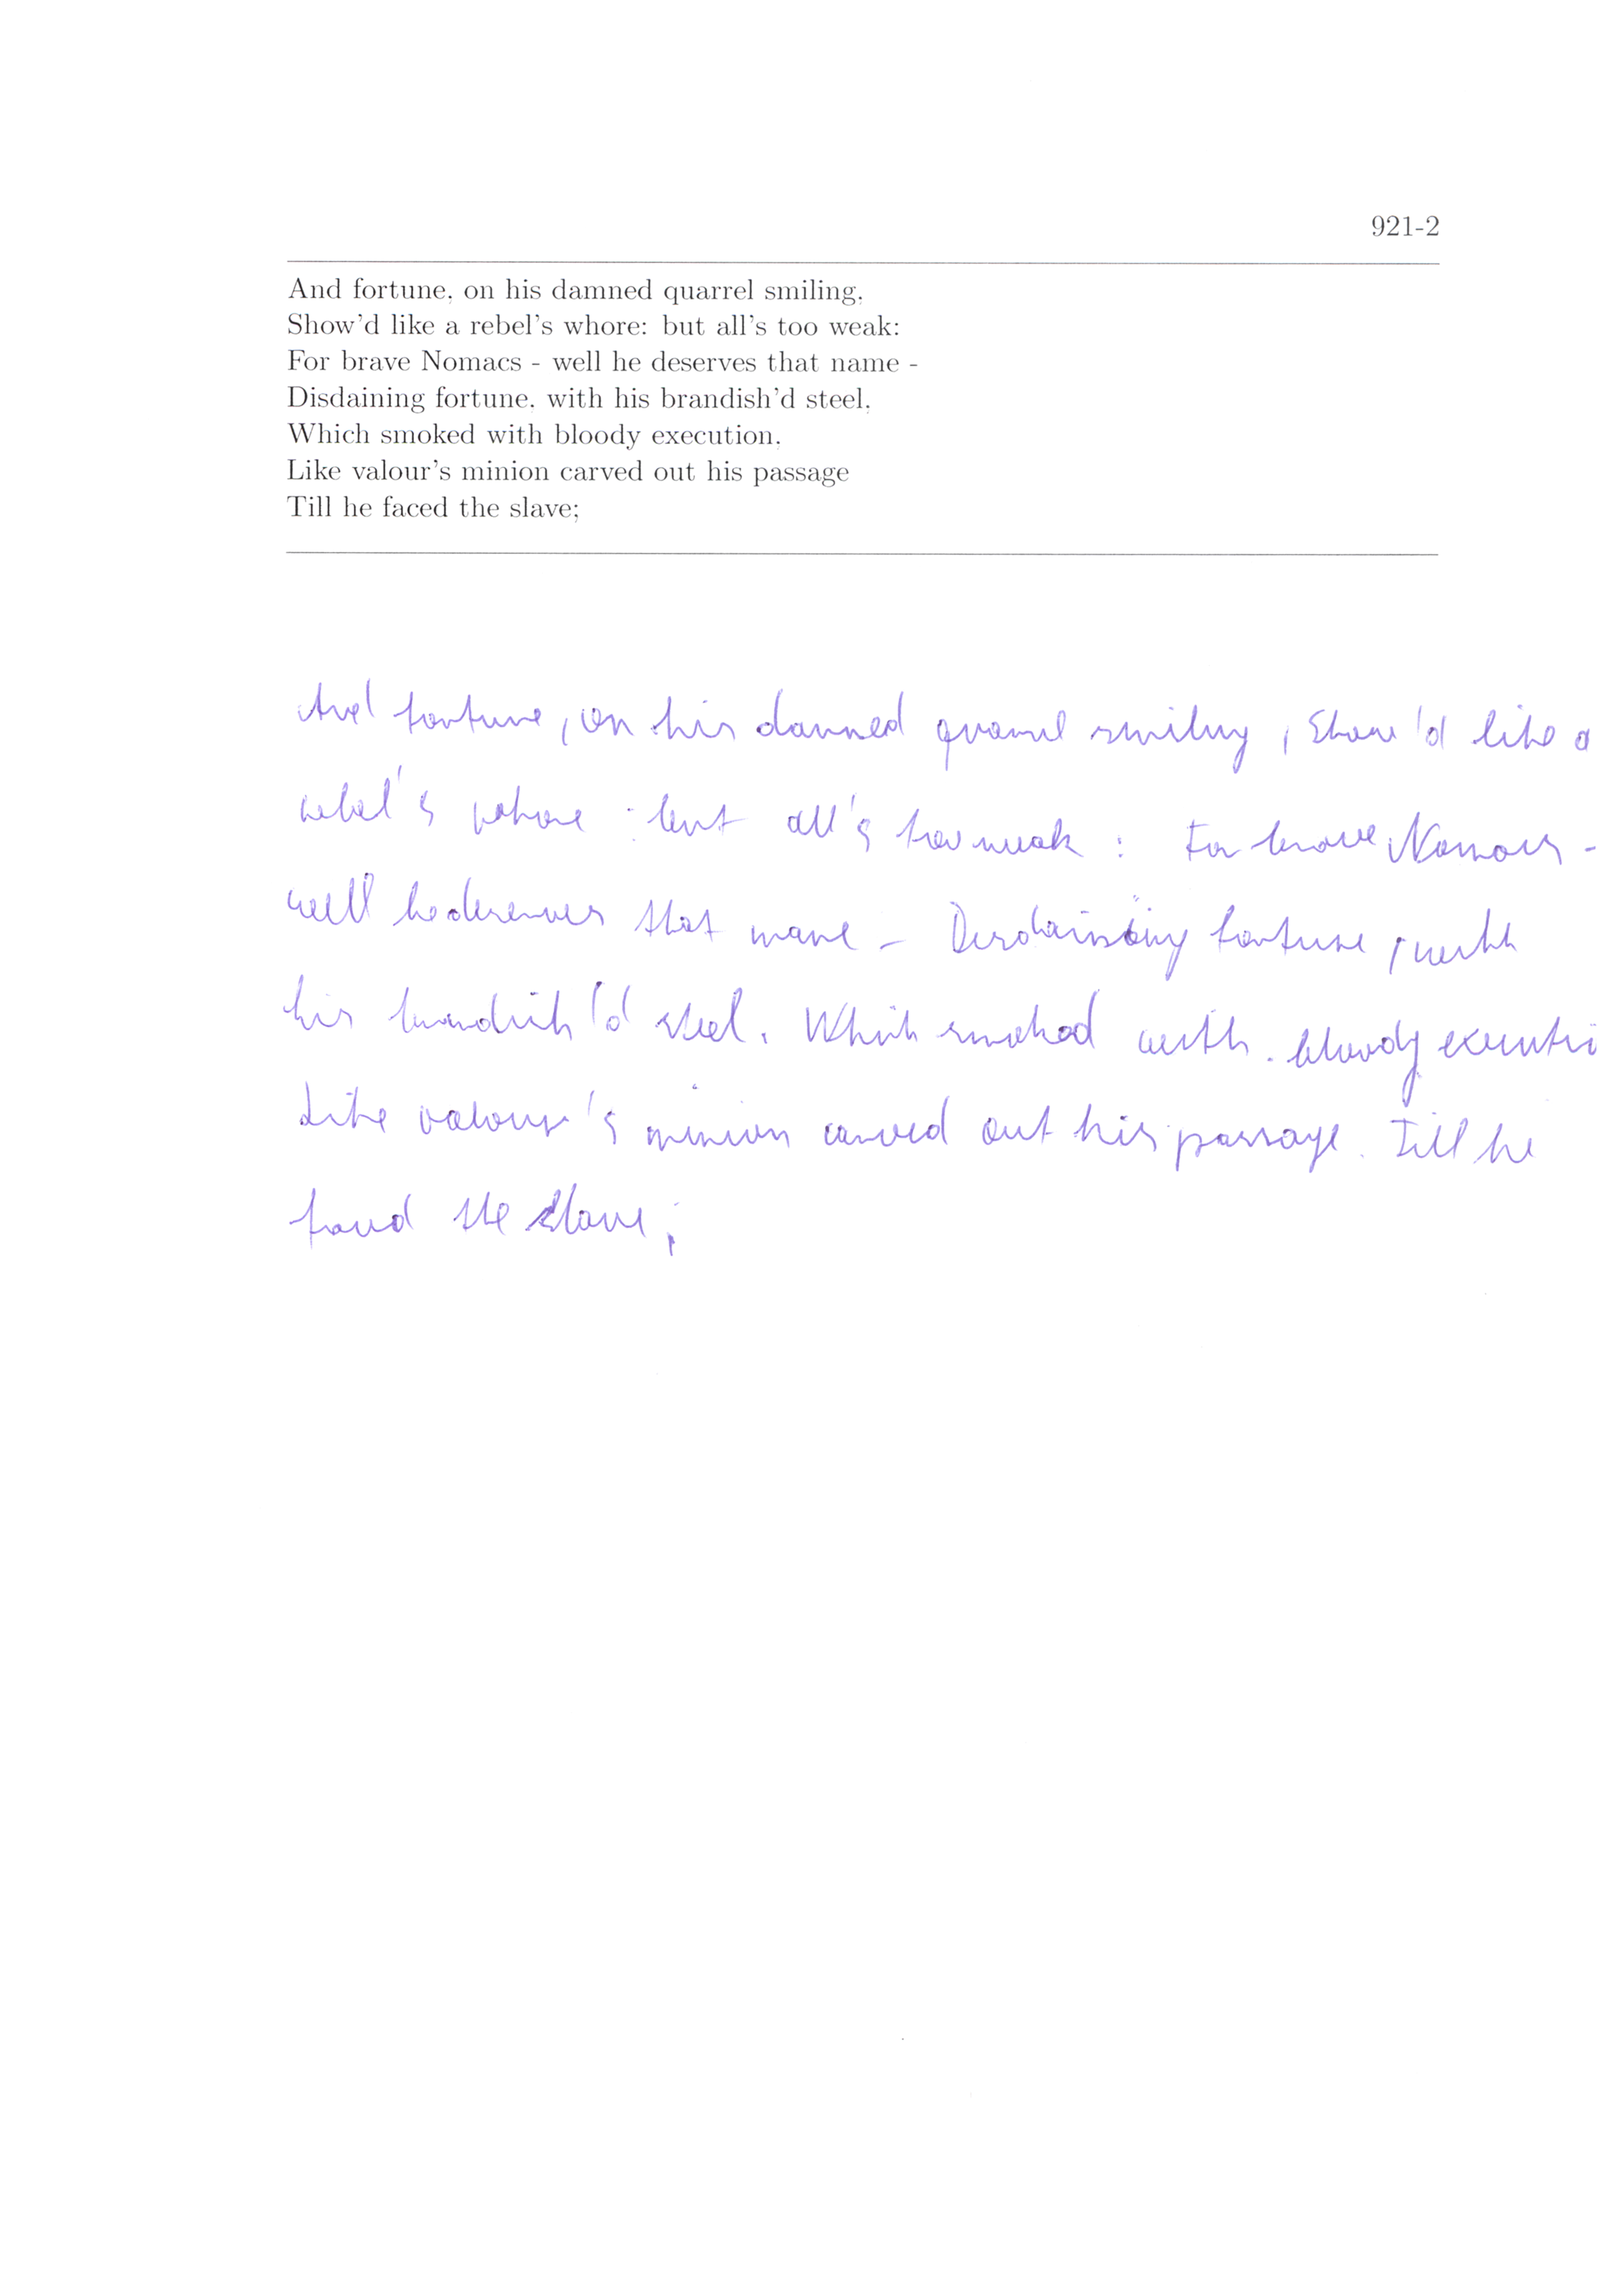 921-2
And fortune, on his damned quarrel smiling,
Show'd like a rebel's whore: but all's too weak:
For brave Nomacs - well he deserves that name -
Disdaining fortune, with his brandish'd steel,
Which smoked with bloody execution,
Like valour's minion carved out his passage
Till he faced the slave;
And fortune, on his damned quarrel smiling, Show'd like a
rebel's whore : but all's too weak : For brave Nomacs -
well he deserves that name - Disdaining fortune, with
his brandish'd steel. Which smoked with bloody executi
Like valour's minion carved out his passage. Till he
faced the slave;